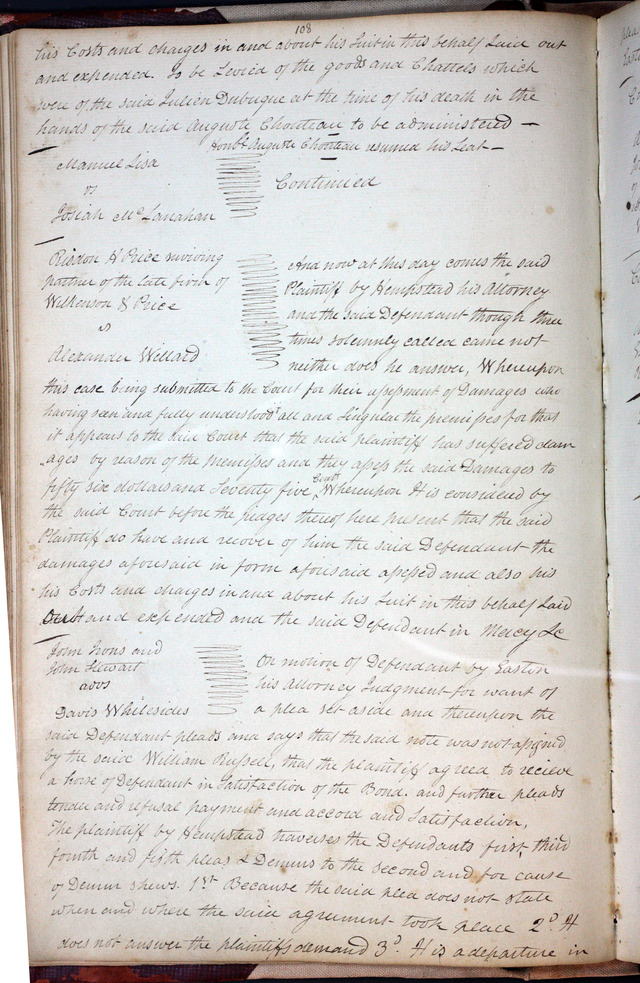 108
his Costs and charges in and about his Suit in this behalf Laid out
and expended to be Levied of the goods and Chattels which
were of the said Julien Dubuque at the time of his death in the
hands of the said Auguste Chouteau to be administered —
Honbl Auguste Chouteau resumed his Seat —
Manuel Lisa
vs
Josiah McLanahan
Continued
Risdon H Price surviving
partner of the late firm of
Wilkenson & Price
vs
Alexander Willard
And now at this day comes the said
Plaintiff by Hempstead his Attorney
and the said Defendant though three
times solemnly called came not
neither does he answer, Whereupon
this case being submitted to the Court for their assessment of Damages who
having seen and fully understood all and Singular the premisses for that
it appears to the said Court that the said plaintiff has suffered dam
ages by reason of the premisses and they assess the said Damages to
fifty six dollars and Seventy five Cents Whereupon It is considered by
the said Court before the judges thereof here present that the said
Plaintiff do have and recover of him the said Defendant the
damages aforesaid in form aforesaid assessed and also his
his Costs and charges in and about his Suit in this behalf Laid
Out and expended and the said Defendant in Mercy &c
John Irons and
John Stewart
advs
Davis Whitesides
On motion of Defendant by Easton
his Attorney Judgment for want of
a plea set aside and thereupon the
said Defendant pleads and says that the said note was not assigned
by the said William Russell, that the plaintiff agreed to recieve
a horse of Defendant in Satisfaction of the Bond. and further pleads
tender and refusal payment and accord and Satisfaction,
The plaintiff by Hempstead traverses the Defendants first, third
fourth and fifth pleas & Demurs to the second and for cause
of Demur shews. 1st Because the said plea does not state
when and where the said agreement took place 2d. It
does not answer the plaintiffs demand 3d. It is a departure in